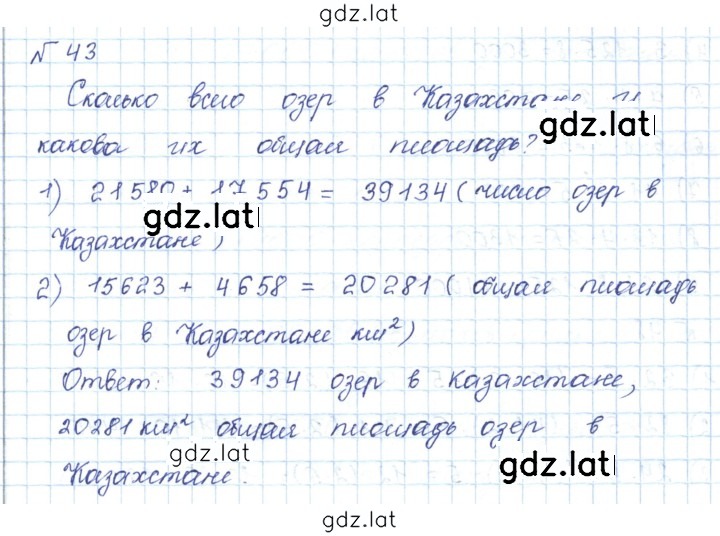 gdz.lat
№ 43
Сколько всего озер в Казахстане и
gdz.lat
какова их общая площадь?
1) 21580 + 17554 = 39134 ( число озер в
gdz.lat
Казахстане )
2) 15623 + 4658 = 20281 ( общая площадь
озер в Казахстане км²)
Ответ: 39134 озер в Казахстане,
20281 км² общая площадь озер в
gdz.lat
Казахстане.
gdz.lat
gdz.lat